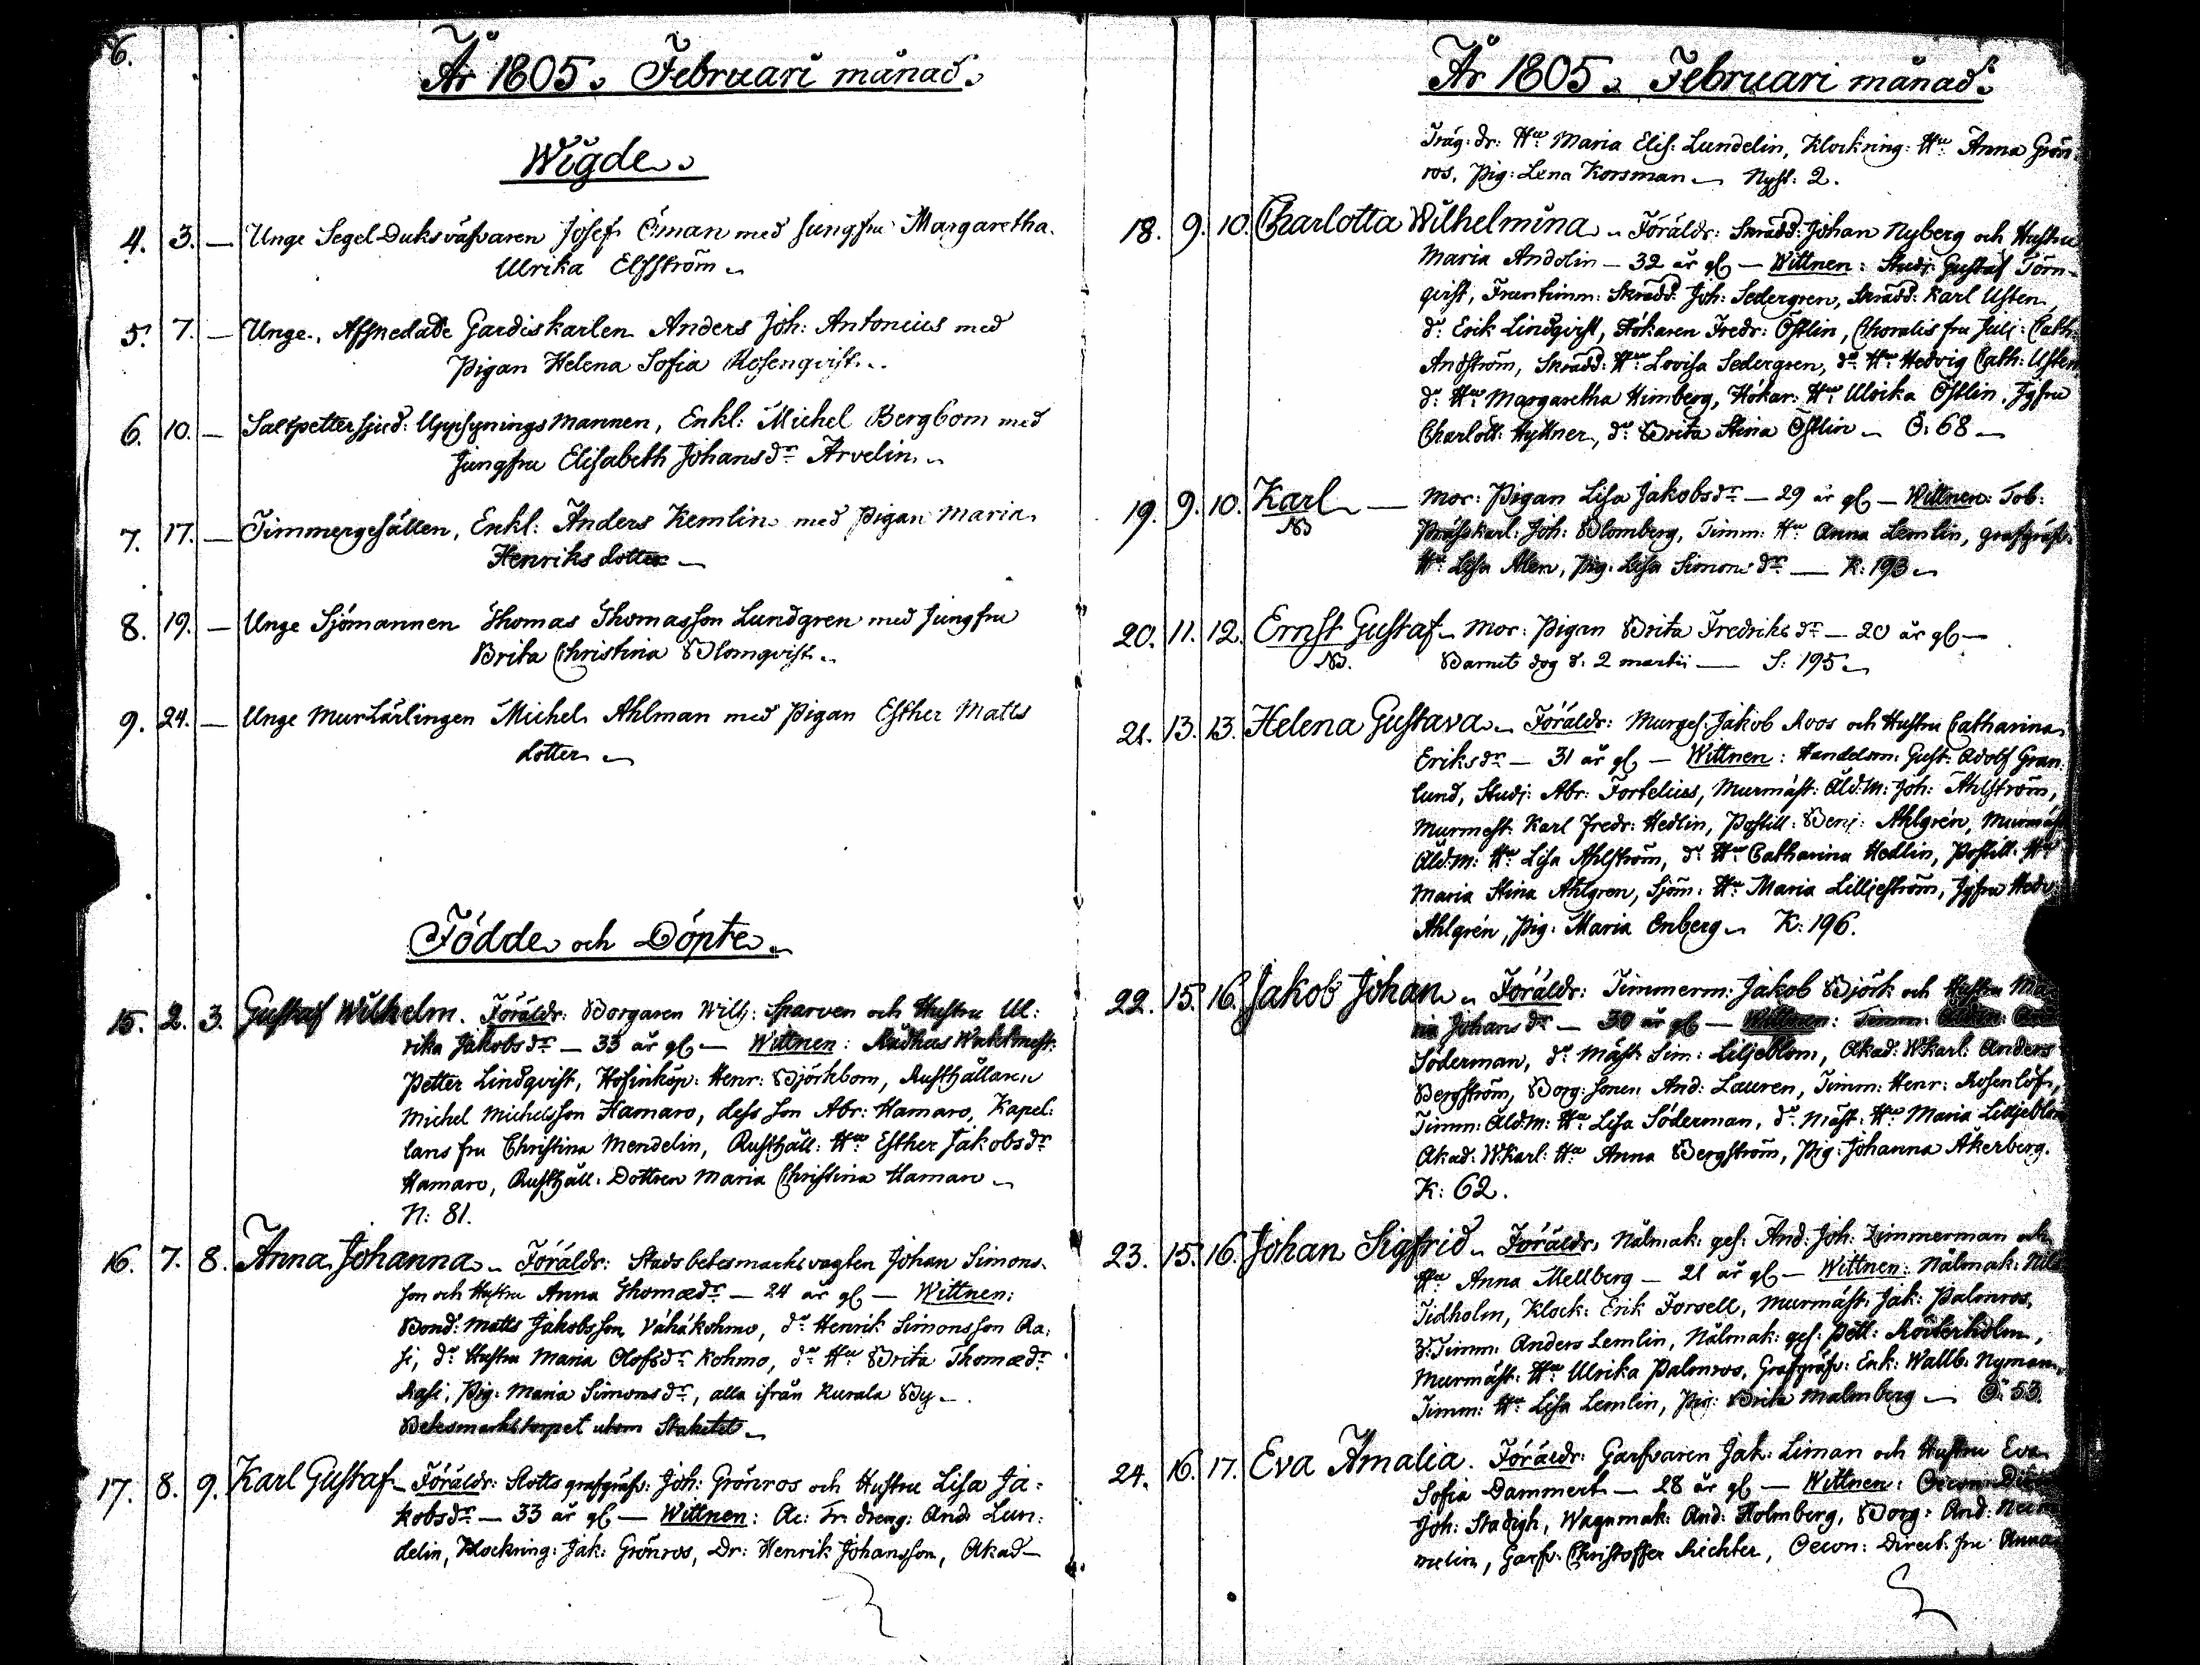 6.
År 1805. Februari månad.
Wigde.
4. 3. — Unge Segel Duksväfvaren Josef Öman med Jungfru Margaretha
Ulrika Elfström
5. 7. — Unge, Afskedade Gardiskarlen Anders Joh: Antonius med
Pigan Helena Sofia Rosenqvist.
6. 10. — Saltpettersjud: Uppsynings Mannen, Enkl: Michel Bergbom med
Jungfru Elisabeth Johans dr Arvelin
7. 17. — Timmergesällen, Enkl: Anders Kemlin med Pigan Maria
Henriks dotter —
8. 19. — Unge Sjömannen Thomas Thomasson Lundgren med Jungfru
Brita Christina Blomqvist
9. 24. — Unge Murlärlingen Michel Ahlman med Pigan Esther Matts
dotter
Födde och Döpte
15. 2. 3. Gustaf Wilhelm. Föräldr: Borgaren Wilh: Sparven och Hustru Ul:
rika Jakobs dr — 33 år gl — Wittnen: Rådhus Waktmest:
Petter Lindqvist, Hofinköp: Henr: Björkbom, Rusthållaren
Michel Michelsson Hamaro, dess son Abr: Hamaro, Kapel:
lans fru Christina Mendelin, Rusthåll: Hru Esther Jakobs dr
Hamaro, Rusthåll: Dottren Maria Christina Hamaro
N: 81.
16. 7. 8. Anna Johanna. Föräldr: Stads betesmarksvagten Johan Simons
son och Hustru Anna Thomæ dr — 24 år gl — Wittnen:
Bond: Matts Jakobsson Vähäkohmo, do Henrik Simonsson Ra:
si, do Hustru Maria Olofs dr Kohmo, do Hru Brita Thomæ dr
Rasi, Pig: Maria Simons dr, alla ifrån Kurala By
Betesmarkstorpet utom Staketet
17. 8. 9. Karl Gustaf. Föräldr: Slotts grafgräfv: Joh: Grönros och Hustru Lisa Ja:
kobs dr — 33 år gl — Wittnen: Ac: Tr: dreng: And: Lun:
delin, Klockring: Jak: Grönros, Dr: Henrik Johansson, Akad—
År 1805. Februari månad.
Träg: dr: Hru Maria Elis: Lundelin, Klockring: Hru Anna Grön:
ros, Pig: Lena Korsman Nyst: 2.
18. 9. 10. Charlotta Wilhelmina. Föräldr: Skrädd: Johan Nyberg och Hustru
Maria Andolin — 32 år gl — Wittnen: Studj: Gustaf Törn-
qvist, Skrädd: Joh: Sedergren, Skrädd: Karl Usten
do Erik Lindqvist, Hökaren Fredr: Östlin, Choralis fru Juli: Cath:
Andström, Skrädd: Hru Lovisa Sedergren, do Hru Hedvig Cath: Usten
do Hru Margaretha Himberg, Hökar: Hru Ulrika Östlin, Jgfru
Charlott: Hyttner, do Brita Stina Östlin Ö: 68 —
19. 9. 10. Karl — Mor: Pigan Lisa Jakobs dr — 29 år gl — Wittnen: Tob:
NB Joh: Blomberg, Timm: Hru Anna Lemlin, grafgräfv:
Hru Lisa Alen, Pig: Lisa Simons dr — K: 193
20. 11. 12. Ernst Gustaf. Mor: Pigan Brita Fredriks dr — 20 år gl —
NB. Barnet dog d: 2 martii — S: 195
21. 13. 13. Helena Gustava. Föräldr: Murges: Jakob Roos och Hustru Catharina
Eriks dr — 31 år gl — Wittnen: Handelsm: Gust: Adolf Gran:
lund, Studj: Abr: Fortelius, Murmäst: Åld:m: Joh: Ahlström,
Murmest: Karl Fredr: Hedlin, Postill: Benj: Ahlgrén, Murmäst
Åld:m: Hru Lisa Ahlström, do Hru Catharina Hedlin, Postill: Hru
Maria Stina Ahlgren, Sjöm: Hru Maria Lilljeström, Jgfru Hedv:
Ahlgrén, Pig: Maria Enberg K: 196.
22. 15. 16. Jakob Johan. Föräldr: Timmerm: Jakob Björk och Hustru Ma
ria Johans dr — 30 år gl — Wittnen: Timm:
Söderman, do Mäst: Sim: Liljeblom, Akad: W:karl: Anders
Bergström, Borg: sonen And: Lauren, Timm: Henr: Rosenlöf,
Timm: Åld:m: Hru Lisa Söderman, do Mäst: Hru Maria Lilljeblom
Akad: W:karl: Hru Anna Bergström, Pig: Johanna Åkerberg.
K: 62.
23. 15. 16. Johan Sigfrid. Föräldr: Nålmak: ges: And: Joh: Zimmerman och
Hru Anna Mellberg — 21 år gl — Wittnen: Nålmak: Nils
Tidholm, Klock: Erik Forsell, Murmäst: Jak: Palmros,
Timm: Anders Lemlin, Nålmak: ges: Pett:
Murmäst: Hru Ulrika Palmros, Grafgräfv: Enk: Wallb: Nyman
Timm: Hru Lisa Lemlin, Pig: Brita Malmberg — Ö: 53.
24. 16. 17. Eva Amalia. Föräldr: Garfvaren Jak: Liman och Hustru Eva
Sofia Dammert — 28 år gl — Wittnen: Oecon:
Joh: Stadigh, Wagnmak: And: Holmberg, Borg: And:
melin, Garfv: Christoffer Richter, Oecon: Direct: fru Anna